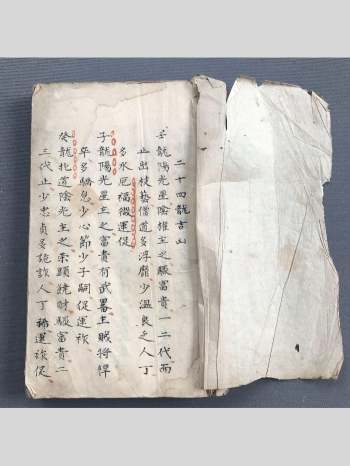 二十四龍吉山
壬龍陽光星陰雄主之驟富貴一二代而
止出技藝僧道多浮靡少溫良之人丁
多水厄福微運促
子龍陽光星主之富貴有武畧主賊將悍
卒多驕怠少心節少子嗣促運祚
癸龍北道陰光主之柔順純財驟富貴二
三代止少忠貞多詭詐人丁稀運祚促